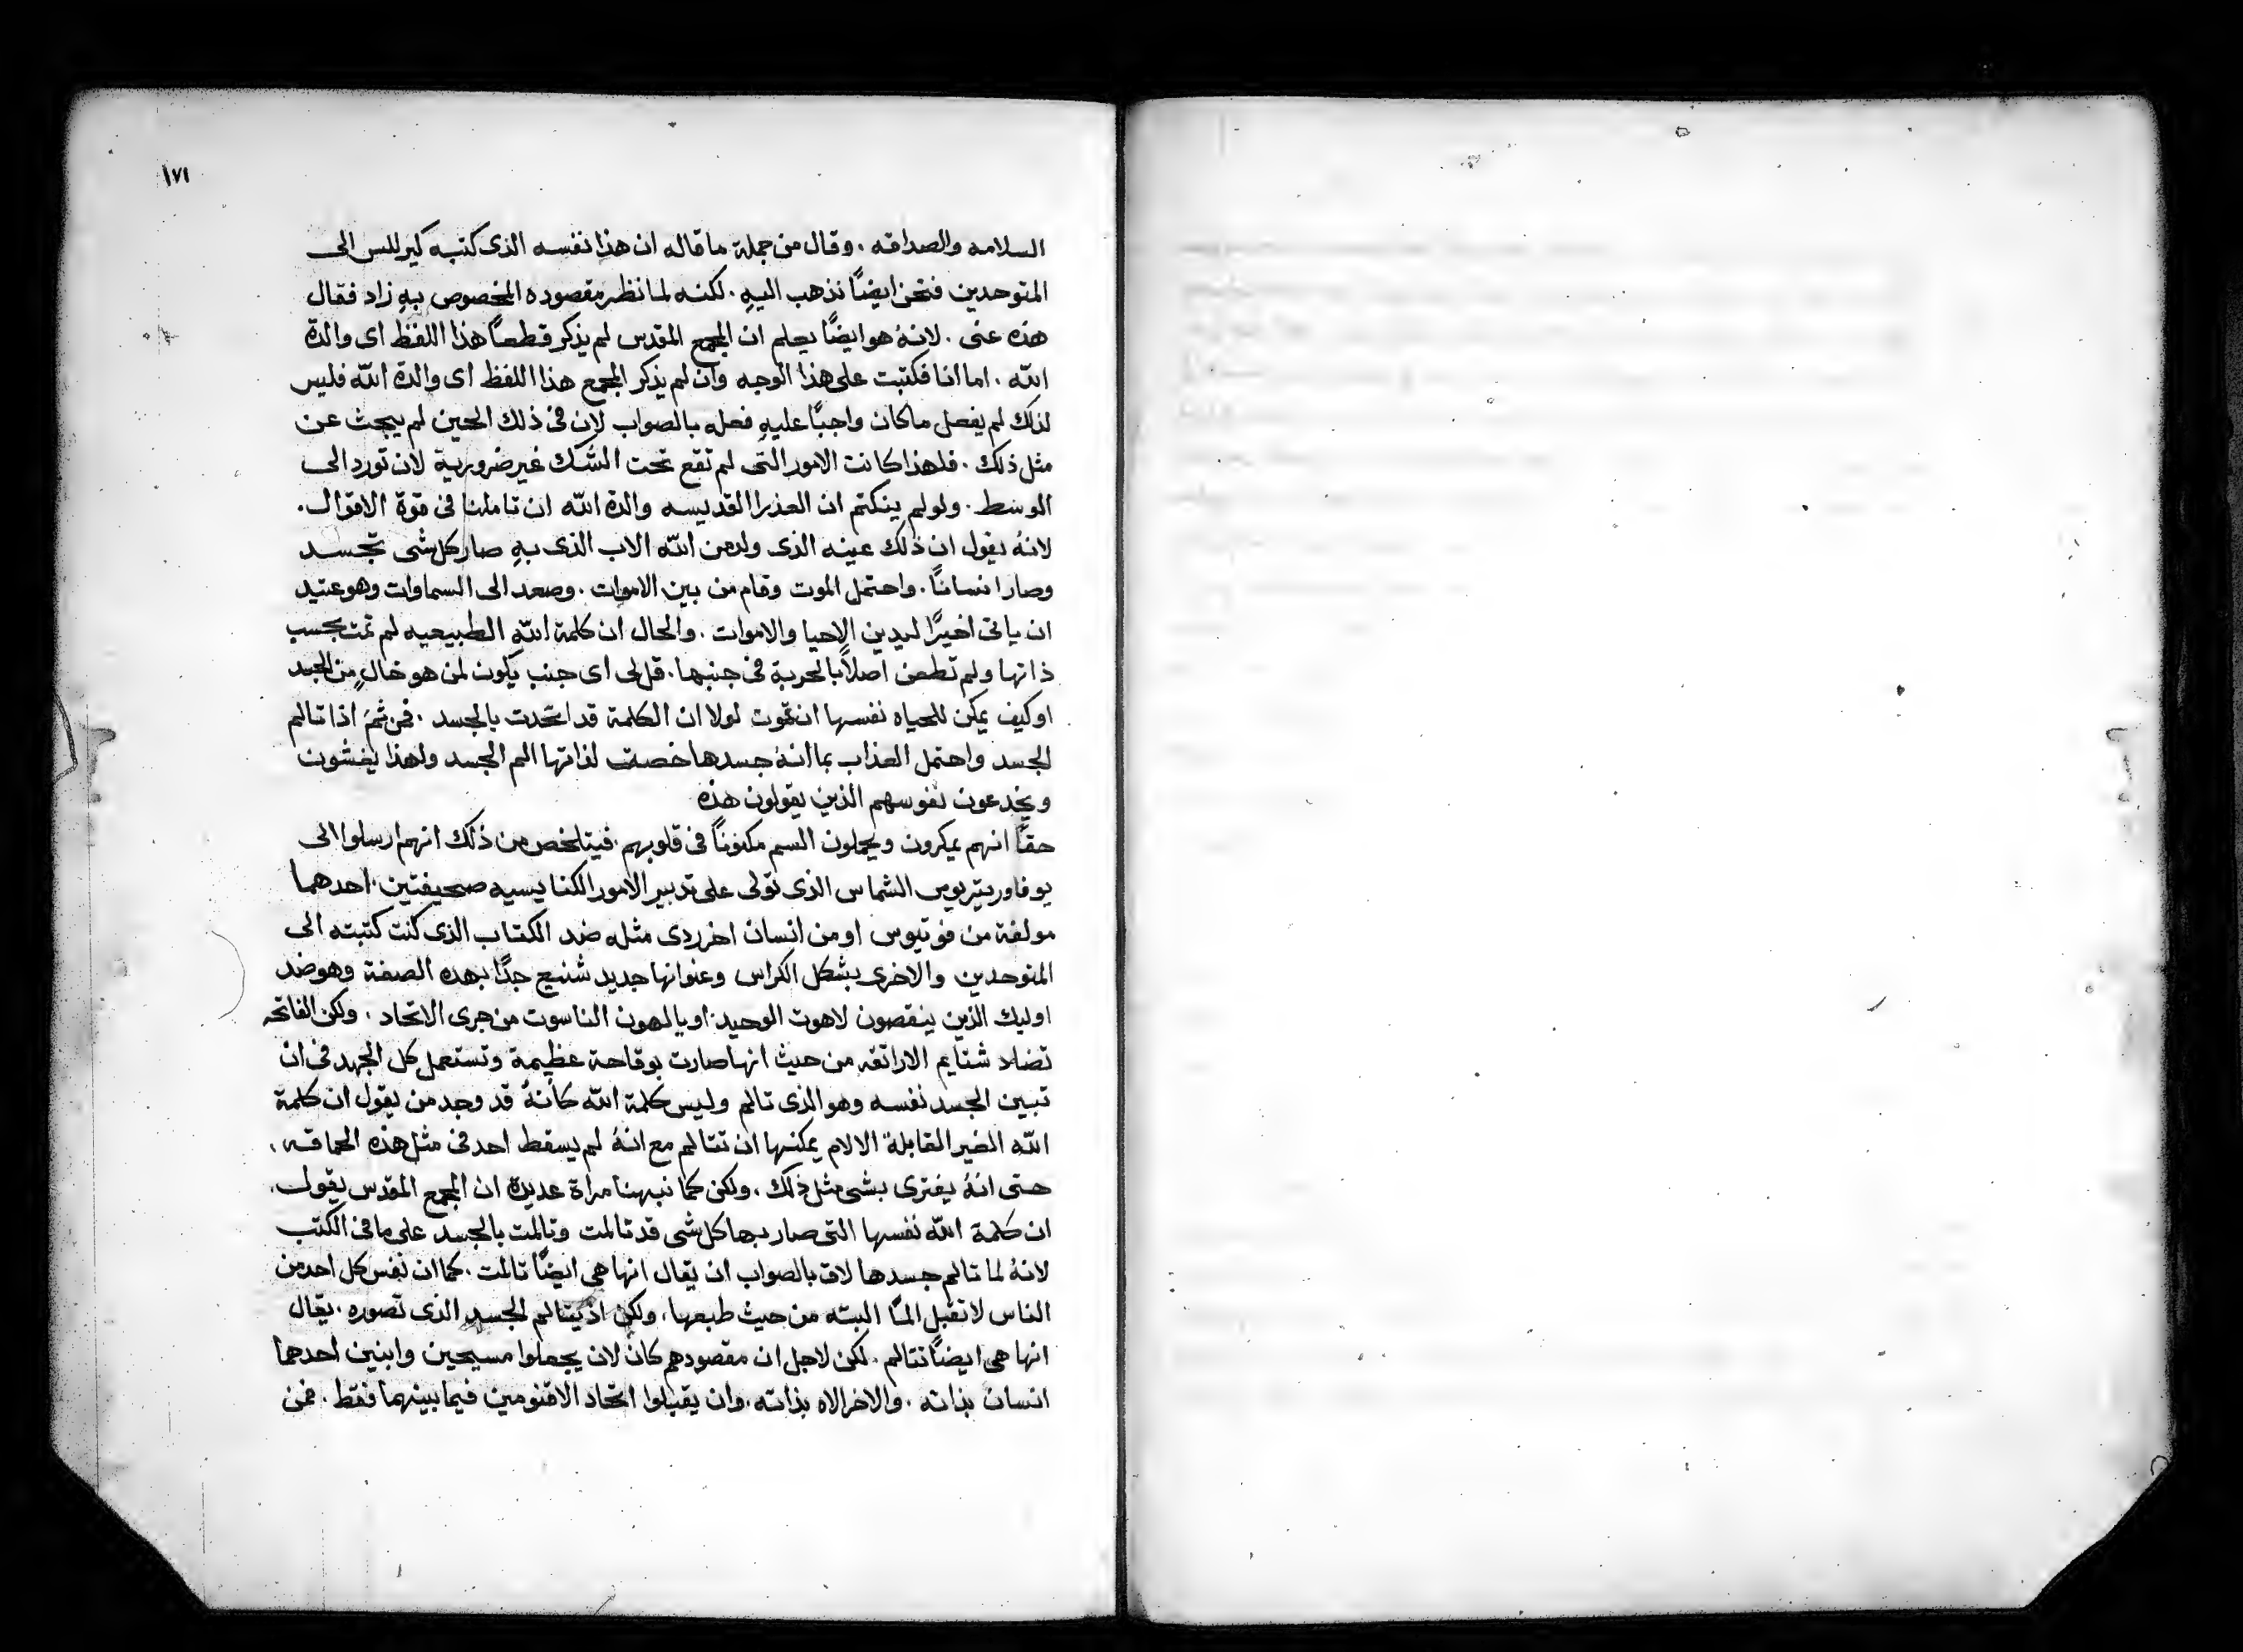 ١٧١
السلامه والصداقه . وقال من جملة ما قاله ان هذا نفسه الذى كتبه كيرللس الى
المتوحدين فنحن ايضًا نذهب اليهِ . لكنه لما نظر مقصوده المخصوص بهِ زاد فقال
هذه عنى . لانهُ هو ايضًا يعلم ان المجمع المقدس لم يذكر قطعًا هذا اللفظ اى والدة
الله . اما انا فكتبت على هذا الوجه وان لم يذكر المجمع هذا اللفظ اى والدة الله فليس
لذلك لم يفعل ما كان واجبًا عليهِ فعله بالصواب لان فى ذلك الحين لم يبحث عن
مثل ذلك . فلهذا كانت الامور التى لم تقع تحت الشك غير ضرورية لان تورد الى
الوسط . ولو لم ينكتم ان العذرا القديسه والدة الله ان تاملنا فى قوة الاقوال .
لانهُ يقول ان ذلك عينه الذى ولد من الله الاب الذى بهِ صار كل شى تجسد
وصار انسانًا . واحتمل الموت وقام من بين الاموات . وصعد الى السماوات وهو عتيد
ان ياتى اخيرًا ليدين الاحيا والاموات . والحال ان كلمة الله الطبيعيه لم تمت بحسب
ذاتها ولم تطعن اصلاً بالحربة فى جنبها . قل لى اى جنب يكون لمن هو خالٍ من الجسد
او كيف يمكن للحياه نفسها ان تموت لولا ان الكلمة قد اتحدت بالجسد . فمن ثمَ اذا تالم
الجسد واحتمل العذاب بما انهُ جسدها خصت لذاتها الم الجسد ولهذا يغشون
ويخدعون نفوسهم الذين يقولون هذه
حقًا انهم يمكرون ويحملون السم مكنونًا فى قلوبهم . فيتلخص من ذلك انهم ارسلوا الى
الشماس الذى تولى على تدبير الامور الكنايسيه صحيفتين . احدهما
مولفة من فوتيوس او من انسان اخر ردى مثله ضد الكتاب الذى كنت كتبته الى
المتوحدين والاخرى بشكل الكراس وعنوانها جديد شنيع جدًا بهذه الصفة وهو ضد
اوليك الذين ينقصون لاهوت الوحيد او يالهون الناسوت من جرى الاتحاد . ولكن الفاتحه
تضاد شتايم الاراتقه من حيث انها صارت بوقاحة عظيمة وتستعمل كل الجهد فى ان
تبين الجسد نفسه وهو الذى تالم وليس كلمة الله كانهُ قد وجد من يقول ان كلمة
الله الغير القابلة الالام يمكنها ان تتالم مع انهُ لم يسقط احد فى مثل هذه الحماقه .
حتى انهُ يفترى بشى مثل ذلك . ولكن كما نبهنا مراة عديدة ان المجمع المقدس يقول .
ان كلمة الله نفسها التى صار بها كل شى قد تالمت وتالمت بالجسد على ما فى الكتب
لانهُ لما تالم جسدها لاق بالصواب ان يقال انها هى ايضًا تالمت . كما ان نفس كل احد من
الناس لا تقبل المًا البته من حيث طبعها . ولكن اذ يتالم الجسد الذى تصوره . يقال
انها هى ايضًا تتالم . لكن لاجل ان مقصودهم كان لان يجعلوا مسيحين وابنين احدهما
انسان بذاته . والاخر الاه بذاته . وان يقبلوا اتحاد الاقنومين فيما بينهما فقط . فمن